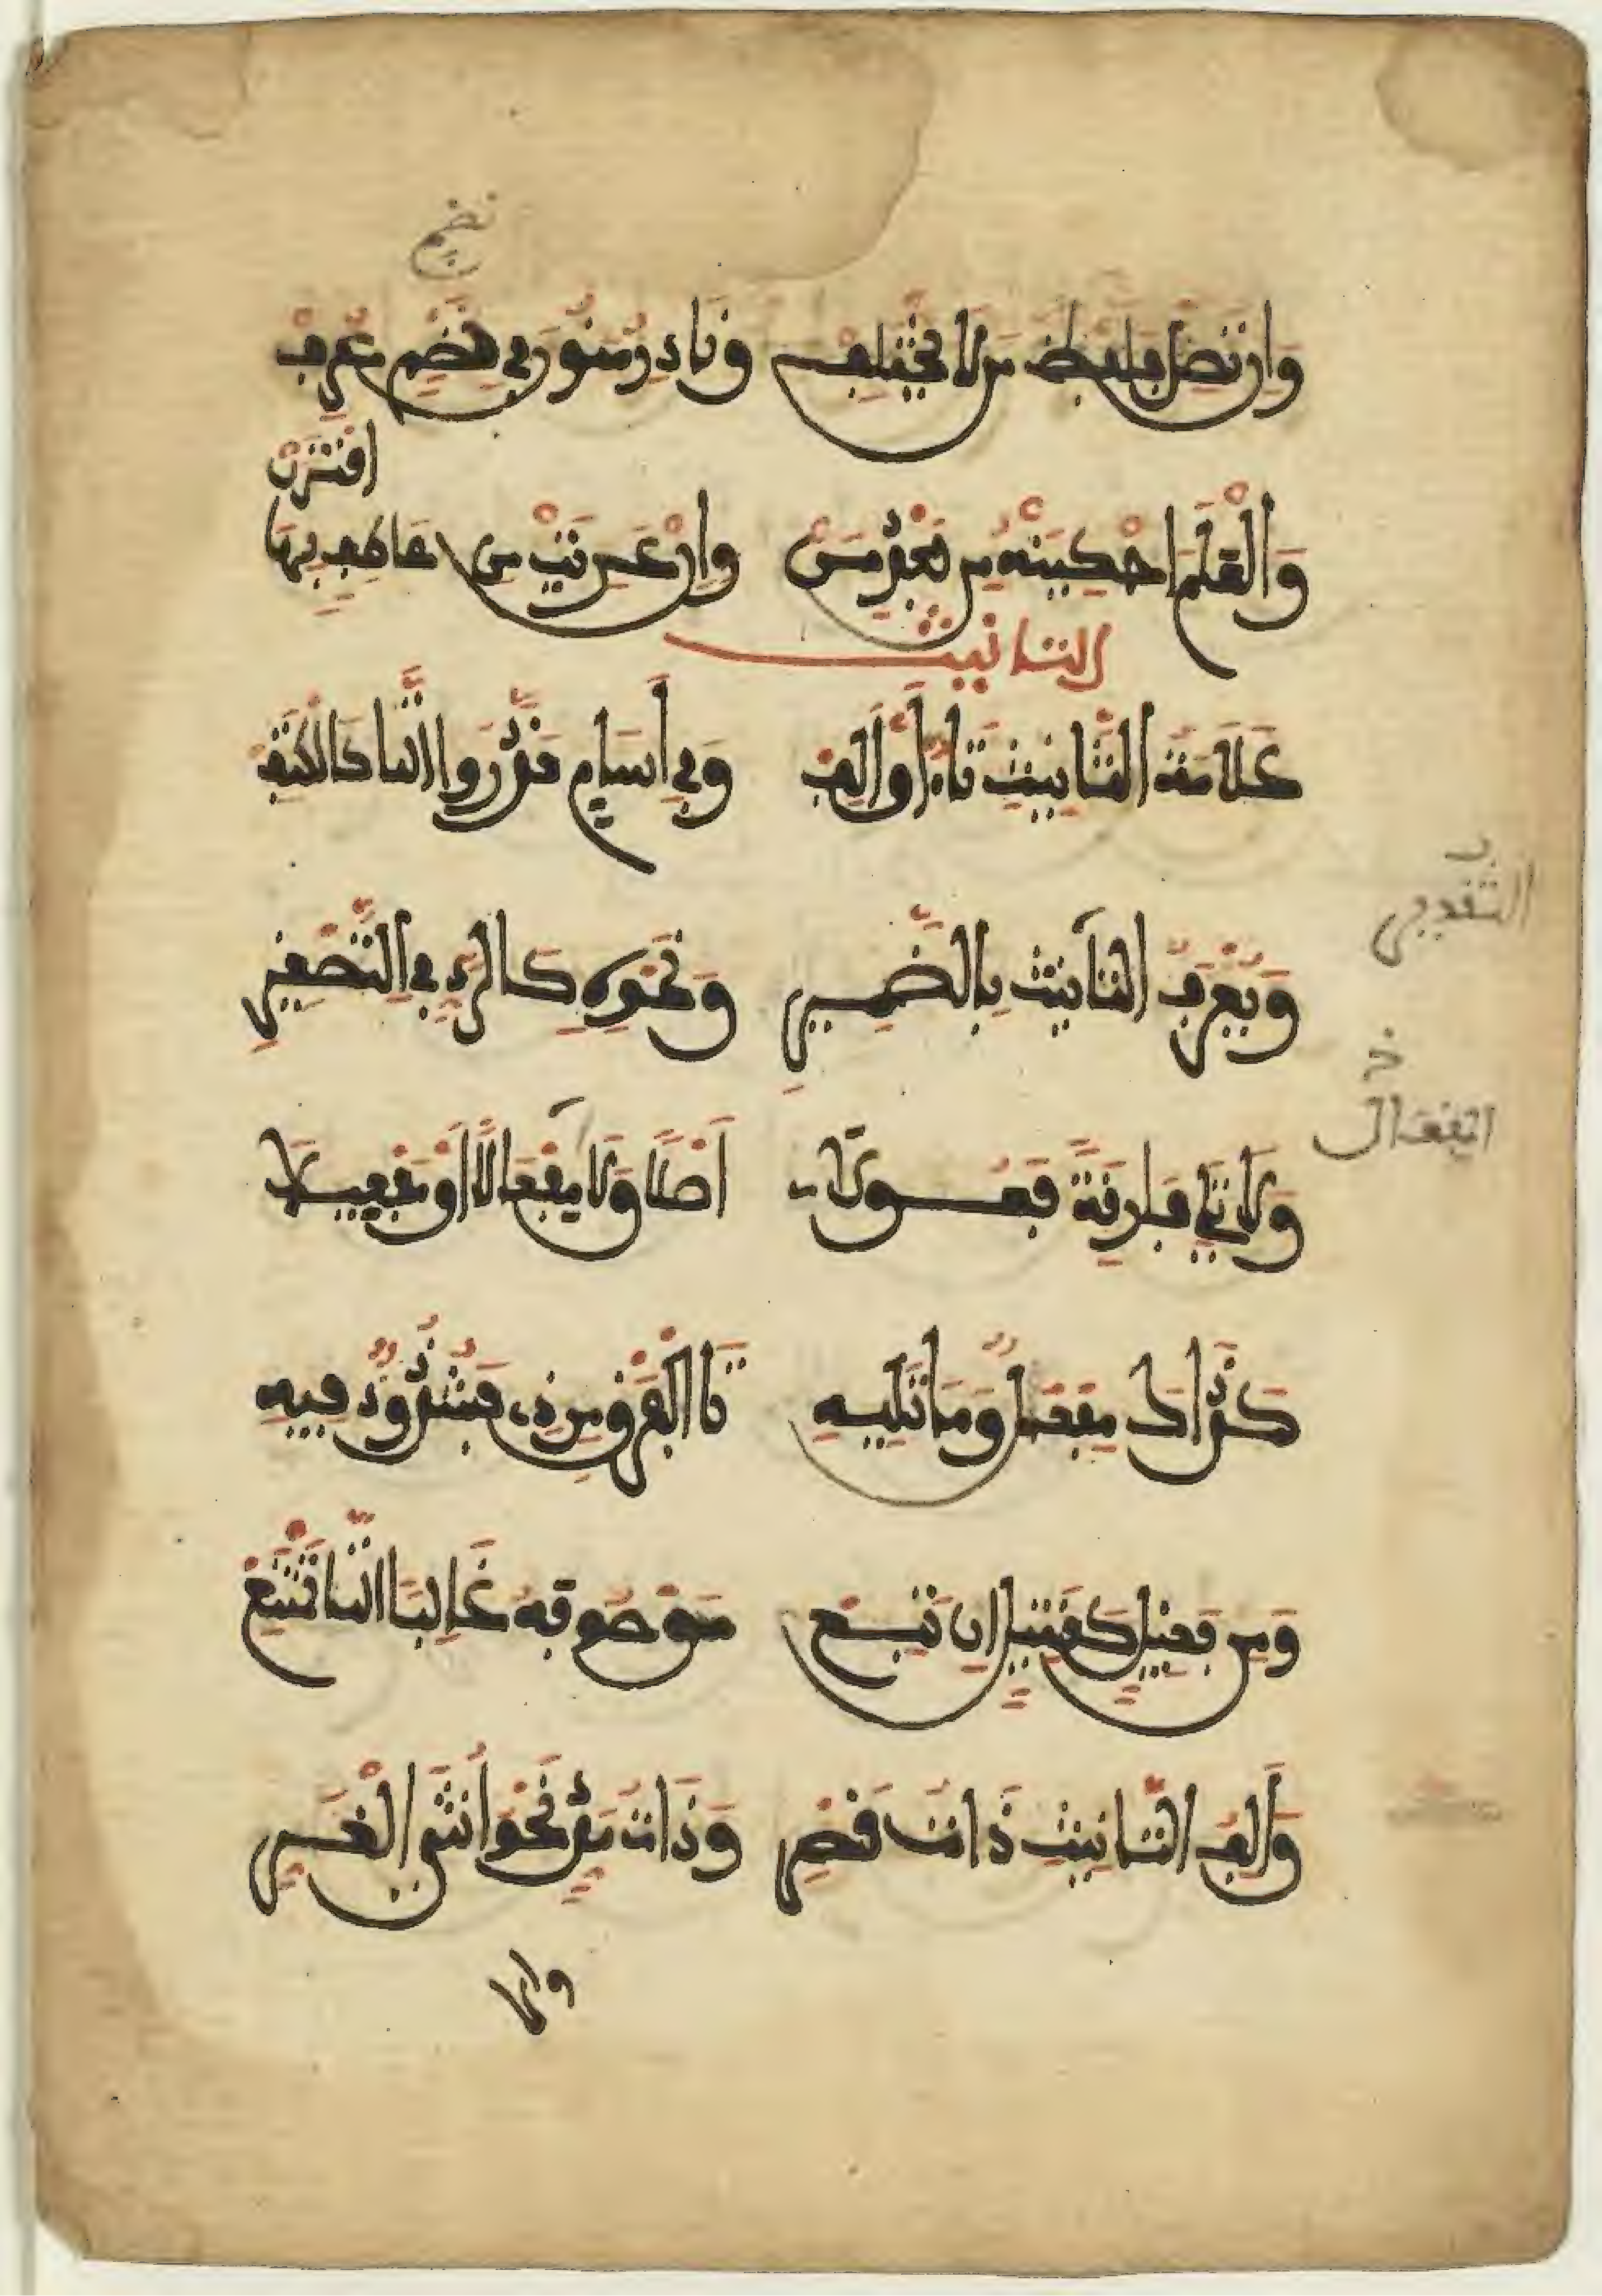 نضم
وَإِن تَصِلْ فَلَفْظُ مَن لَا يَخْتَلِفْ وَنَادِرٌ مَنُونَ فِي نَضْمٍ عُرِفْ
وَالْعَلَمَ احْكِيَنَّهُ مِن بَعْدِ مَنْ وَإِنْ عَرِيَتْ مِن عَاطِفٍ بِهَا اقْتَرَنْ
التانيث
عَلَامَةُ التَّانِيثِ تَاءٌ أَوْ أَلِفْ وَفِي أَسَامٍ قَدَّرُوا التَّا كَالْكَتِفْ
وَيُعْرَفُ التَّانِيثُ بِالضَّمِيرِ وَنَحْوِهِ كَالرَّدِّ فِي التَّصْغِيرِ
التقديـ
وَلَا تَلِي فَارِقَةً فَعُولَا أَصْلًا وَلَا مِفْعَالًا أَوْ مِفْعِيلَا
المفعال
كَذَاكَ مِفْعَلٌ وَمَا تَلِيهِ تَا الْفَرْقِ مِن ذِي فَشُذُوذٌ فِيهِ
وَمِن فَعِيلٍ كَقَتِيلٍ إِن تَبِعْ مَوْصُوفَهُ غَالِبًا التَّا تَمْتَنِعْ
وَأَلِفُ التَّانِيثِ ذَاتُ قَصْرِ وَذَاتُ مَدٍّ نَحْوُ أُنْثَى الْغُرِّ
والا